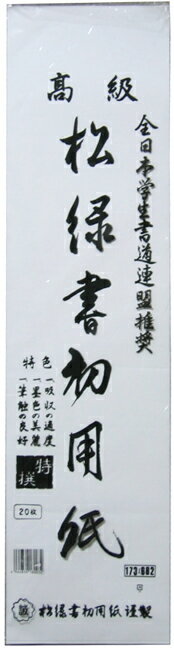 高級
全日本学生書道連盟推奨
松緑書初用紙
特色
一、吸収の適度
一、墨色の美麗
一、筆触の良好
特撰
20枚
173×682
松緑書初用紙謹製